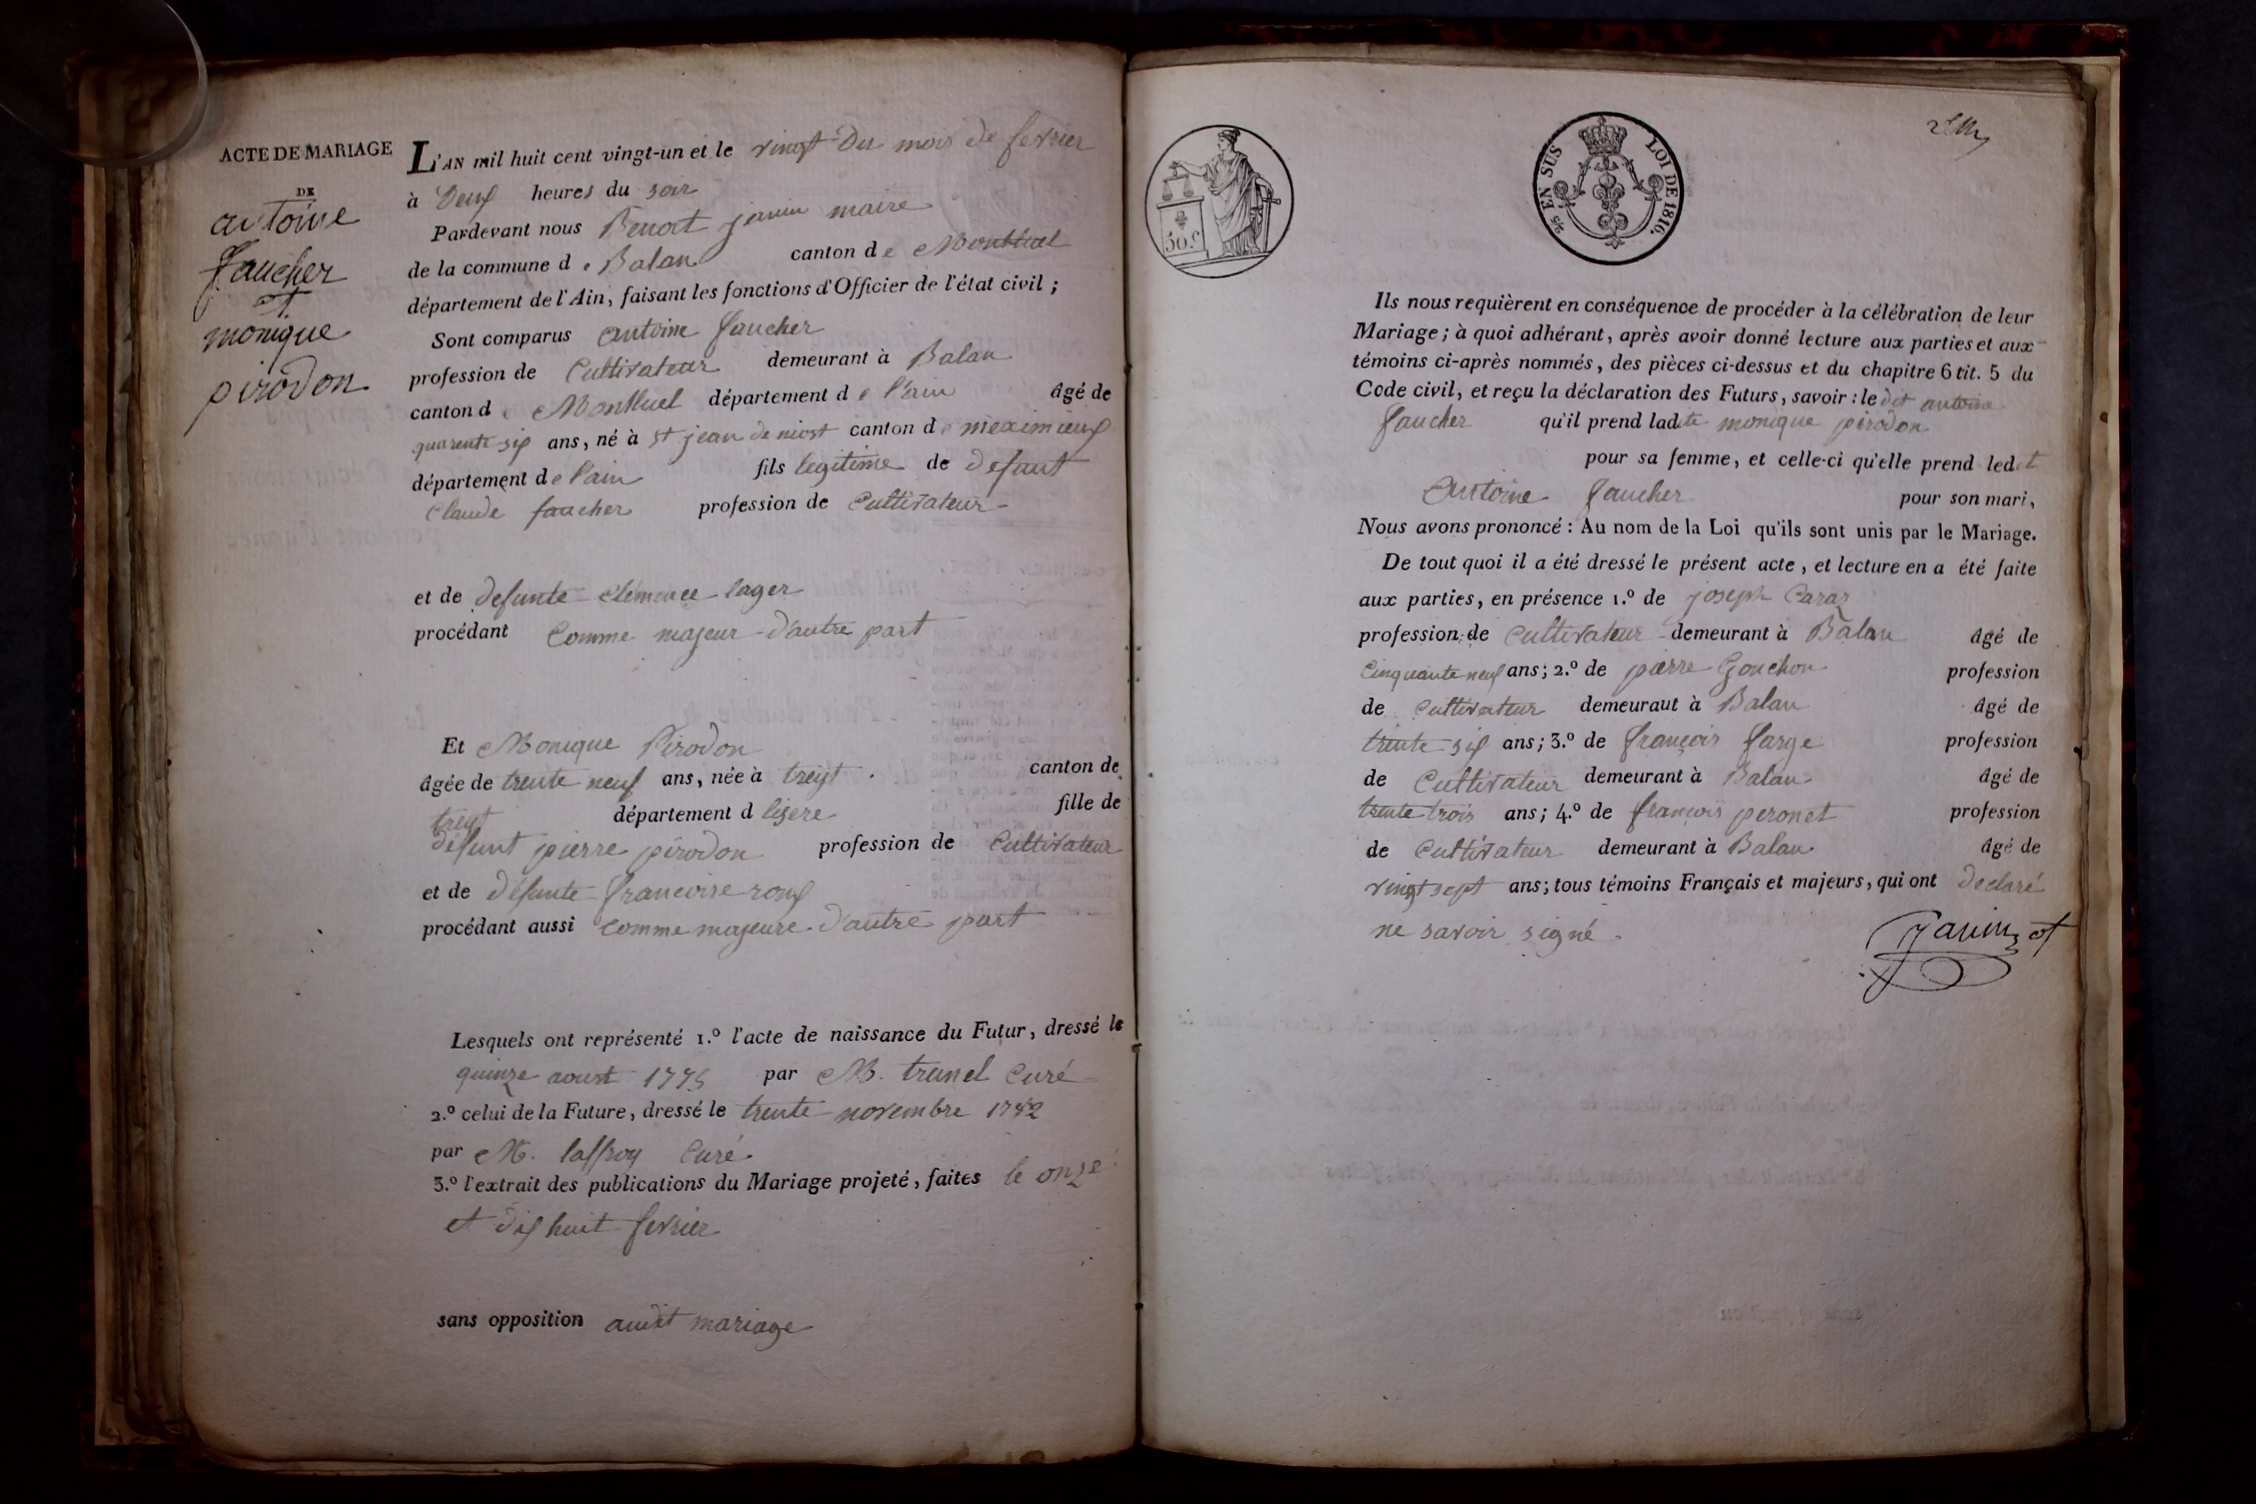 ACTE DE MARIAGE
DE
antoine
faucher
et
monique
pirodon
L'AN mil huit cent vingt-un et le vingt Du mois de fevrier
à Deux heures du soir
Pardevant nous Benoit janin maire
de la commune de Balan canton de Montluel
département de l'Ain, faisant les fonctions d'Officier de l'état civil ;
Sont comparus antoine faucher
profession de Cultivateur demeurant à Balan
canton de Montluel département de l'ain âgé de
quarente six ans, né à st jean de niost canton de meximieux
département de l'ain fils legitime de defunt
Claude faucher profession de Cultivateur
et de defunte Clémence lager
procédant Comme majeur d'autre part
Et Monique Pirodon
âgée de trente neuf ans, née à treyt canton de
treyt département d lizere fille de
défunt pierre pirodon profession de Cultivateur
et de défunte francoise roux
procédant aussi Comme majeure d'autre part
Lesquels ont représenté 1.º l'acte de naissance du Futur, dressé le
quinze aoust 1775 par M. trunel Curé
2.º celui de la Future, dressé le trente novembre 1782
par M. laffroy Curé
3.º l'extrait des publications du Mariage projeté, faites le onze
et dix huit fevrier
sans opposition audit mariage
50 c
2/5 EN SUS LOI DE 1816.
Ils nous requièrent en conséquence de procéder à la célébration de leur
Mariage ; à quoi adhérant, après avoir donné lecture aux parties et aux
témoins ci-après nommés, des pièces ci-dessus et du chapitre 6 tit. 5 du
Code civil, et reçu la déclaration des Futurs, savoir : le dit antoine
faucher qu'il prend ladite monique pirodon
pour sa femme, et celle-ci qu'elle prend ledit
Antoine faucher pour son mari,
Nous avons prononcé : Au nom de la Loi qu'ils sont unis par le Mariage.
De tout quoi il a été dressé le présent acte, et lecture en a été faite
aux parties, en présence 1.º de joseph Caraz
profession de Cultivateur demeurant à Balan âgé de
Cinquante neuf ans ; 2.º de pierre Gonchon profession
de Cultivateur demeurant à Balan âgé de
trente six ans ; 3.º de françois farge profession
de Cultivateur demeurant à Balan âgé de
trente trois ans ; 4.º de françois peronet profession
de Cultivateur demeurant à Balan âgé de
vingt sept ans ; tous témoins Français et majeurs, qui ont declaré
ne savoir signé
Janin